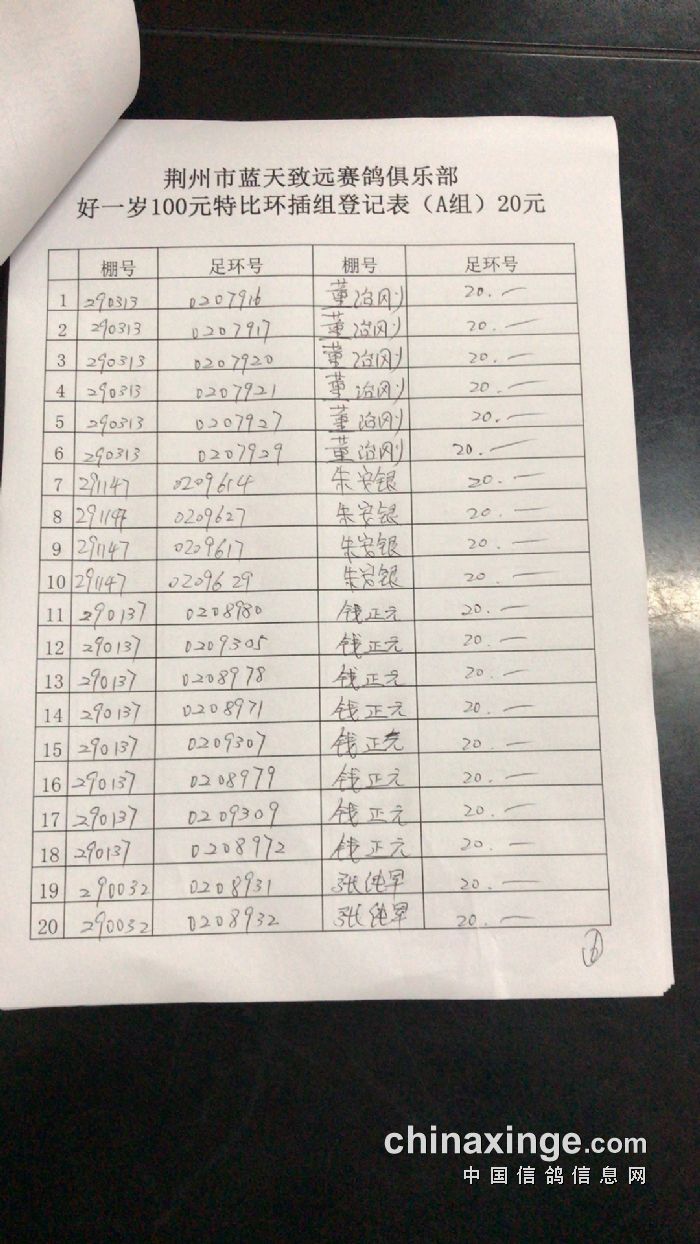 荆州市蓝天致远赛鸽俱乐部
好一岁100元特比环插组登记表（A组）20元
棚号 足环号 棚号 足环号
1 290313 0207916 董治刚 20.一
2 290313 0207917 董治刚 20.一
3 290313 0207920 董治刚 20.一
4 290313 0207921 董治刚 20.一
5 290313 0207927 董治刚 20.一
6 290313 0207929 董治刚 20.一
7 291147 0209614 朱安银 20.一
8 291147 0209627 朱安银 20.一
9 291147 0209617 朱安银 20.一
10 291147 0209629 朱安银 20.一
11 290137 0208980 钱正元 20.一
12 290137 0209305 钱正元 20.一
13 290137 0208978 钱正元 20.一
14 290137 0208971 钱正元 20.一
15 290137 0209307 钱正元 20.一
16 290137 0208979 钱正元 20.一
17 290137 0209309 钱正元 20.一
18 290137 0208972 钱正元 20.一
19 290032 0208931 张纯军 20.一
20 290032 0208932 张纯军 20.一
chinaxinge.com
中国信鸽信息网